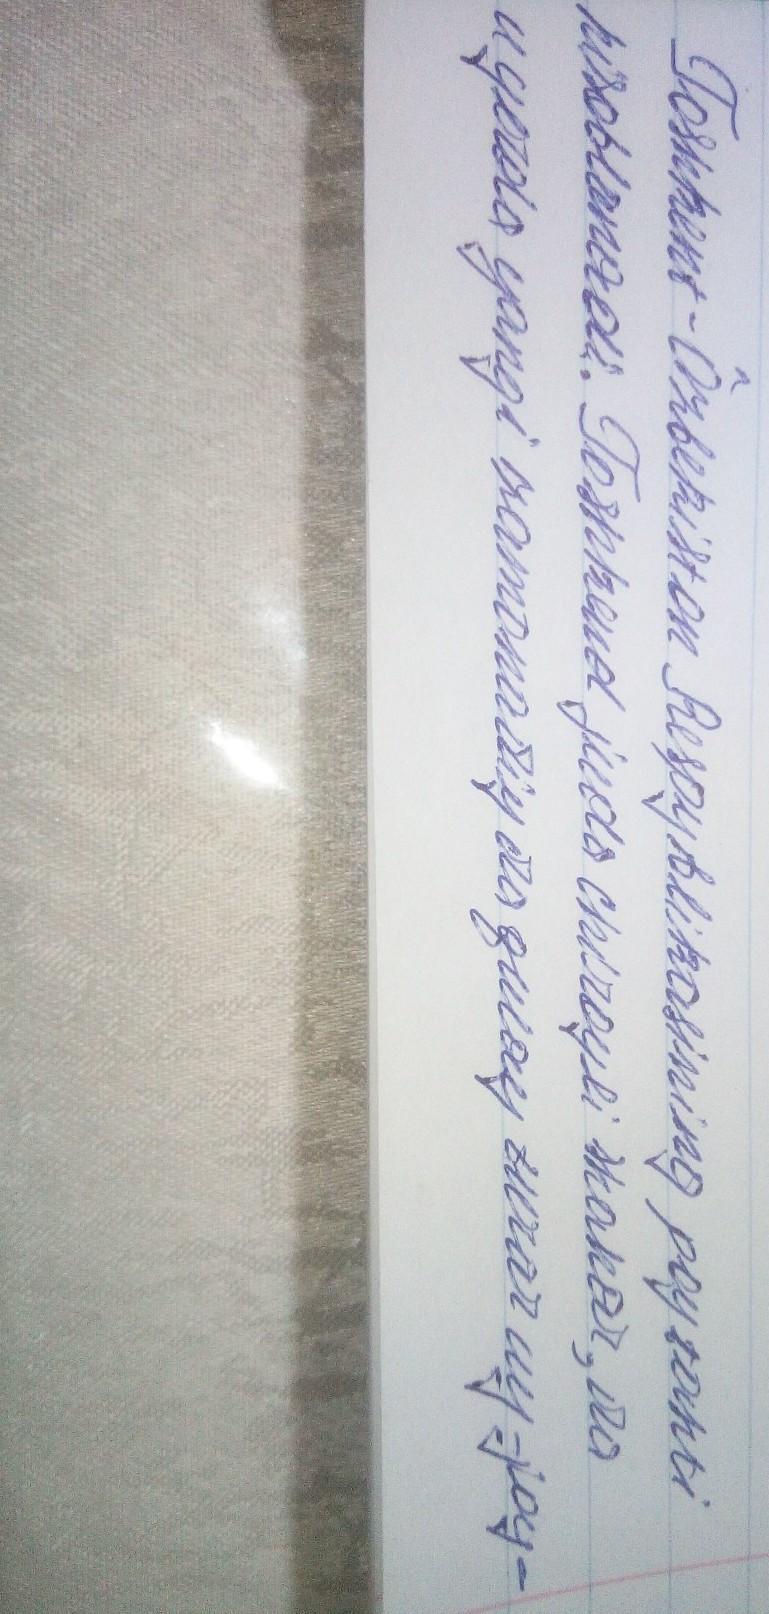 Toshkent - Ôzbekiston Respublikasining poytahti
hisoblanadi. Toshkend juda chiroyli shaher, va
u yerda yangi zamonaviy va gullay uy-joy-